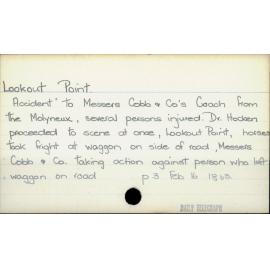 Lookout Point
Accident to Messers Cobb & Co's Coach from
the Molyneux, several persons injured. Dr. Hocken
proceeded to scene at once, Lookout Point, horses
took fright at waggon on side of road, Messers
Cobb & Co. taking action against person who left
waggon on road p 3 Feb 16 1865
DAILY TELEGRAPH